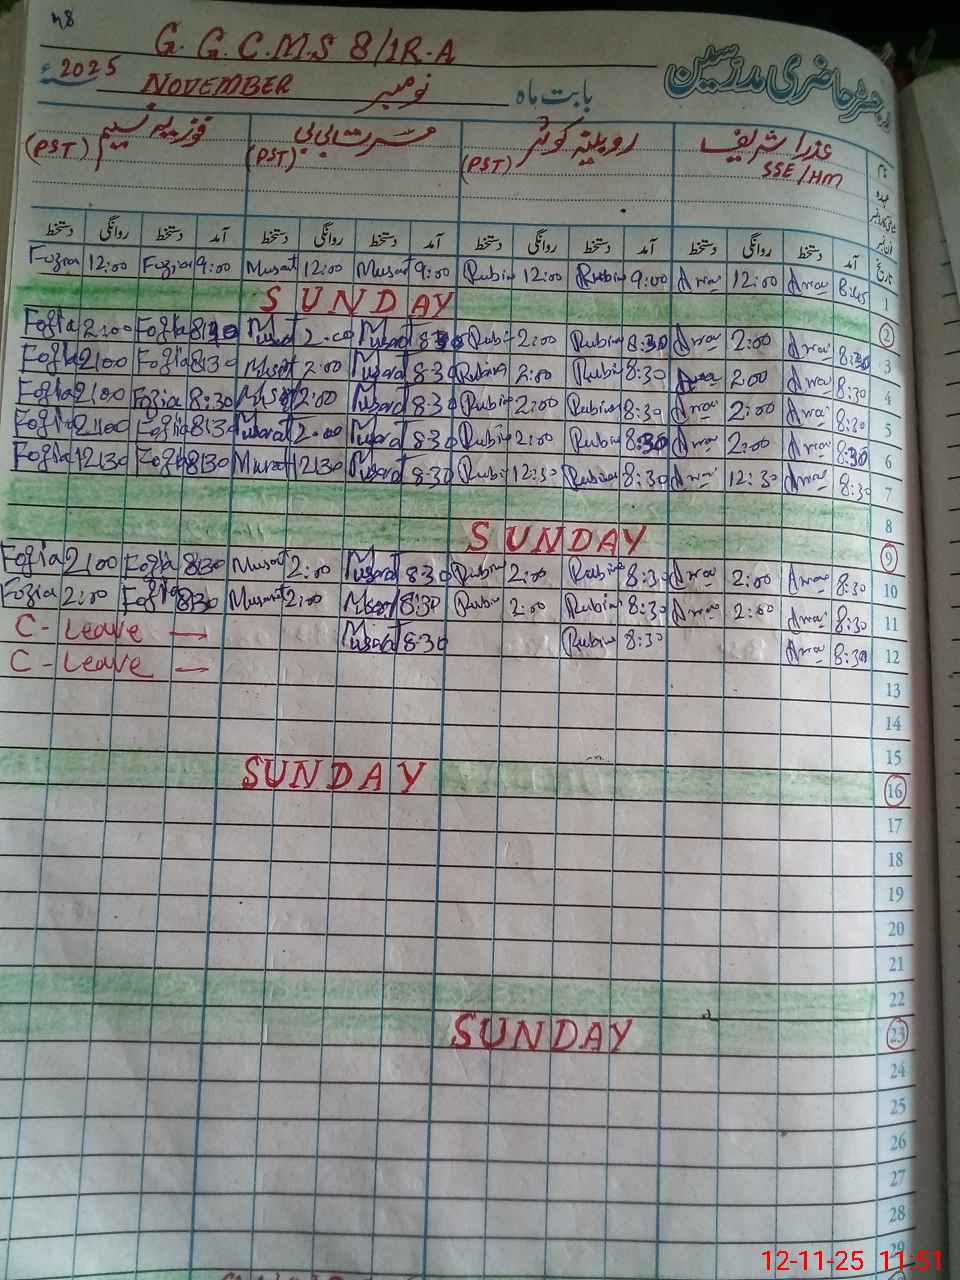 48
G. G. C. M. S 8/1R-A
رجسٹر حاضری مدرسین
2025ء NOVEMBER نومبر بابت ماہ
عذرا شریف روبینہ کوثر مسرت بی بی فوزیہ نسیم
SSE/HM (PST) (PST) (PST)
نام
عہدہ
تاریخ
دستخط روانگی دستخط آمد دستخط روانگی دستخط آمد دستخط روانگی دستخط آمد دستخط روانگی دستخط آمد
Fozia 12:00 Fozia 9:00 Musrat 12:00 Musrat 9:00 Rubin 12:00 Rubin 9:00 12:00 8:45 1
SUNDAY 2
Fozia 2:00 Fozia 8:30 Musrat 2:00 Musrat 8:30 Rubin 2:00 Rubin 8:30 2:00 8:30 3
Fozia 2:00 Fozia 8:30 Musrat 2:00 Musrat 8:30 Rubin 2:00 Rubin 8:30 2:00 8:30 4
Fozia 2:00 Fozia 8:30 Musrat 2:00 Musrat 8:30 Rubin 2:00 Rubin 8:30 2:00 8:30 5
Fozia 2:00 Fozia 8:30 Musrat 2:00 Musrat 8:30 Rubin 2:00 Rubin 8:30 2:00 8:30 6
Fozia 12:30 Fozia 8:30 Musrat 12:30 Musrat 8:30 Rubin 12:30 Rubin 8:30 12:30 8:30 7
8
SUNDAY 9
Fozia 2:00 Fozia 8:30 Musrat 2:00 Musrat 8:30 Rubin 2:00 Rubin 8:30 2:00 8:30 10
Fozia 2:00 Fozia 8:30 Musrat 2:00 Musrat 8:30 Rubin 2:00 Rubin 8:30 2:00 8:30 11
C- Leave — Musrat 8:30 Rubin 8:30 8:30 12
C- Leave — 13
14
15
SUNDAY 16
17
18
19
20
21
22
SUNDAY 23
24
25
26
27
28
29
12-11-25 11:51